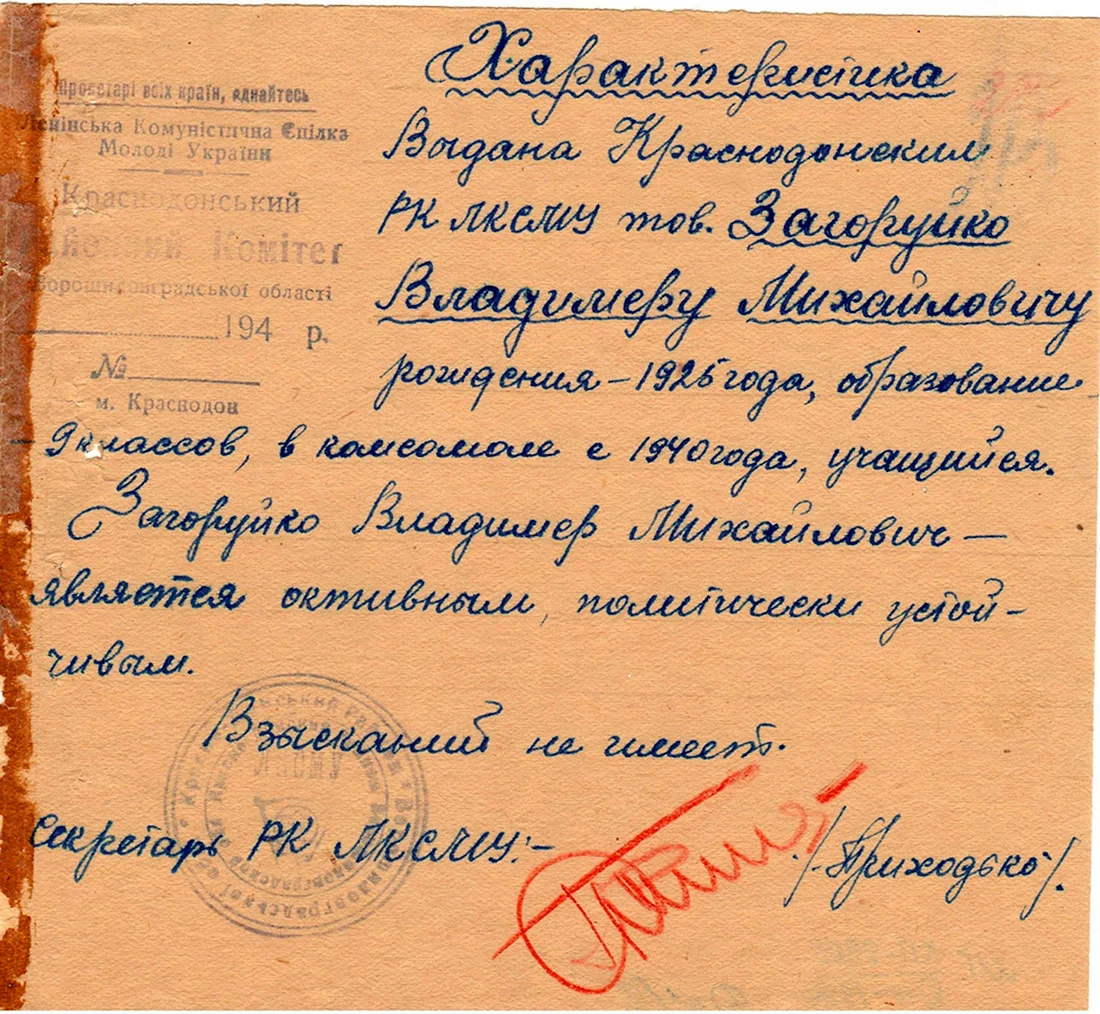 Пролетарі всіх країн, єднайтесь
Ленінська Комуністична Спілка
Молоді України
Краснодонський
Комітет
Ворошиловградської області
194 р.
№
м. Краснодон
Характеристика
Выдана Краснодонским
РК ЛКСМУ тов. Загоруйко
Владимеру Михайловичу
рождения – 1925 года, образование
9 классов, в комсомоле с 1940 года, учащийся.
Загоруйко Владимер Михайлович —
является активным, политически устой-
чивым.
Взысканий не имеет.
Секретарь РК ЛКСМУ:-
/Приходько/.
ЛКСМУ